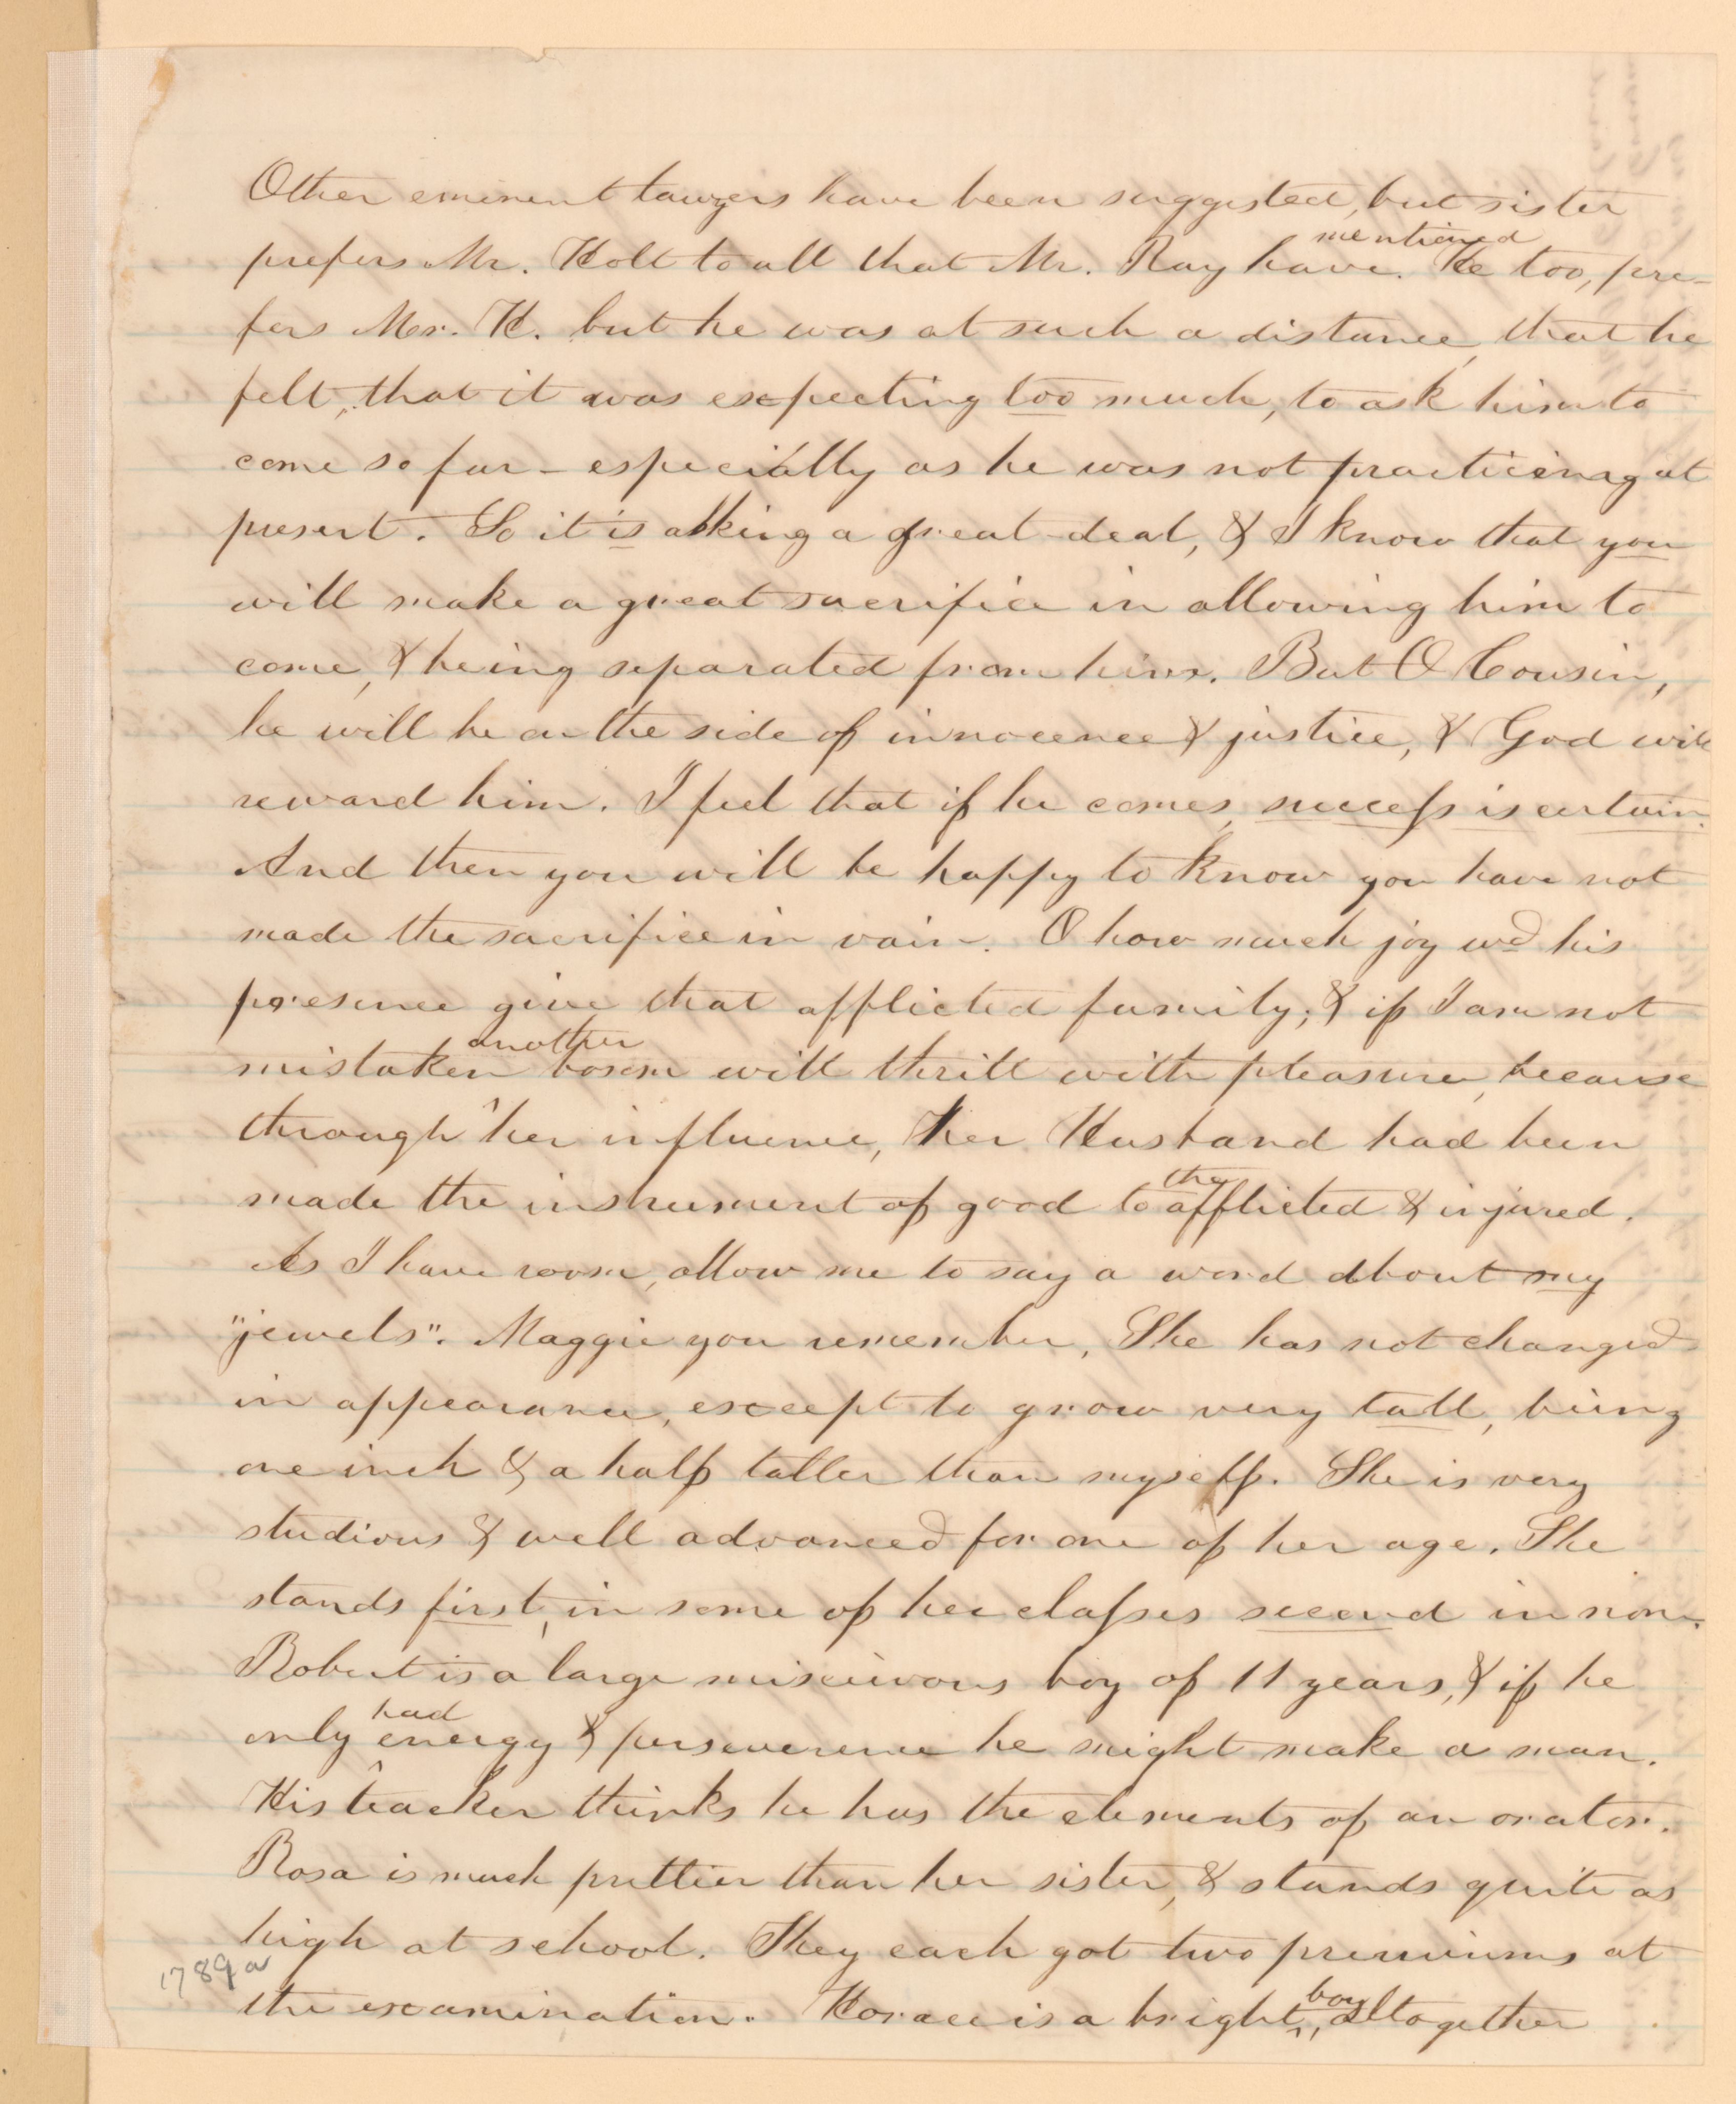 Other eminent lawyers have been suggested, but sister
prefers Mr. Holt to all that Mr. Ray have mentioned. He too, pre-
fers Mr. H. but he was at such a distance, that he
felt, that it was expecting too much, to ask him to
come so far – especially as he was not practicing at
present. So it is asking a great deal, & I know that you
will make a great sacrifice in allowing him to
come, & being separated from him. But O Cousin,
he will be on the side of innocence & justice, & God will
reward him. I feel that if he comes, success is certain.
And then you will be happy to know you have not
made the sacrifice in vain. O how much joy wd his
presence give that afflicted family; & if I am not
mistaken another bosom will thrill with pleasure, because
through her influence, her Husband had been
made the instrument of good to the afflicted & injured.
As I have room, allow me to say a word about my
"jewels". Maggie you remember, She has not changed
in appearance, except to grow very tall, being
one inch & a half taller than myself. She is very
studious & well advanced for one of her age. She
stands first, in some of her classes second in non.
Robert is a large miscivous boy of 11 years, & if he
only had energy & perseverence he might make a man.
His teacher thinks he has the elements of an orator.
Rosa is much prettier than her sister, & stands quite as
high at school. They each got two premiums at
the examination. Horace is a bright boy, altogether
1789a